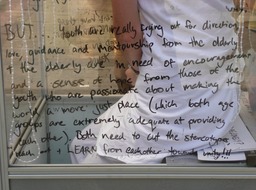 BUT... Youth are really crying out for direction,
love, guidance and mentourship from the elderly
& the elderly are in need of encouragement
and a sense of hope from those of the
youth who are passionate about making this
world a more just place (which both age
groups are extremely adequate at providing
each other). Both need to cut the stereotypes
& LEARN from eachother towards unity!!!